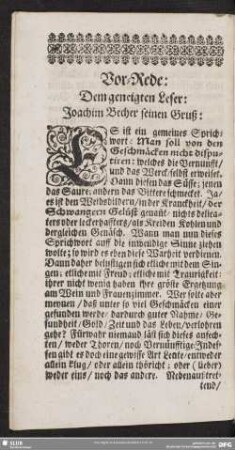 Vor-Rede:
Dem geneigten Leser:
Joachim Becher seinen Gruß:
ES ist ein gemeines Sprich-
wort: Man soll von den
Geschmäcken nicht dispu-
tiren: welches die Vernunfft/
und das Werck selbst erweiset.
Dann diesen das Süsse; jenen
das Saure; andern das Bittere schmeckt. Ja/
es ist den Weibsbildern/ in der Kranckheit/ der
Schwangern Gelüst genañt/ nichts delica-
ters oder leckerhaffters/ als Kreiden Kohlen und
dergleichen Genäsch. Wann man nun dieses
Sprichwort auff die inwendige Sinne ziehen
wolte; so wird es eben diese Warheit verdienen.
Dann daher belustigen sich etliche mit dem Sin-
gen; etliche mit Freud; etliche mit Traurigkeit;
ihrer nicht wenig haben ihre gröste Ergetzung
am Wein und Frauenzimmer. Wer solte aber
meynen/ daß unter so viel Geschmäcken einer
gefunden werde/ dardurch guter Nahme/ Ge-
sundheit/ Gold/ Zeit und das Leben/ verlohren
gehe? Fürwahr niemand läst sich dieses anfech-
ten/ weder Thoren/ noch Vernünfftige: Indes-
sen gibt es doch eine gewisse Art Leute/ entweder
allein klug/ oder allein thöricht; oder (lieber)
weder eins/ noch das andere.
tend/
SLUB